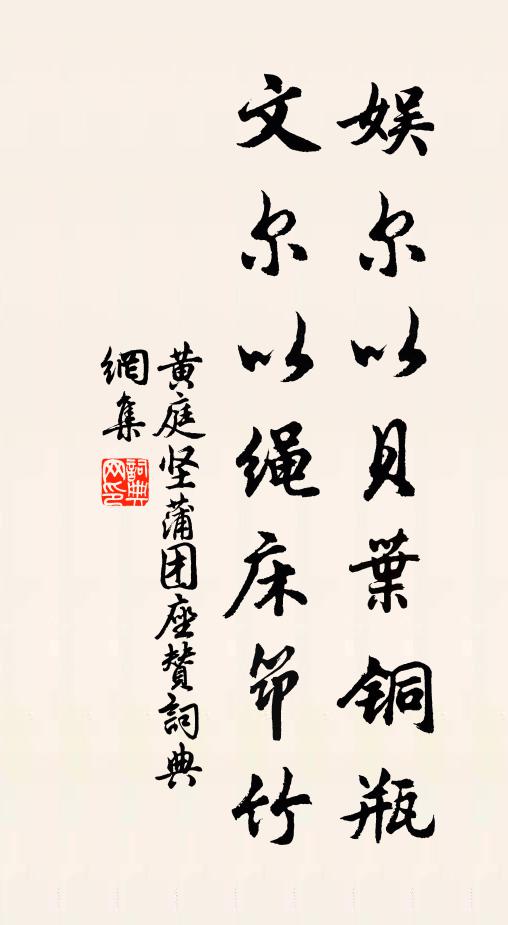 娱尔以贝葉铜瓶
文尔以绳床笻竹
黄庭坚蒲团座赞詞典
網集
詞典網印